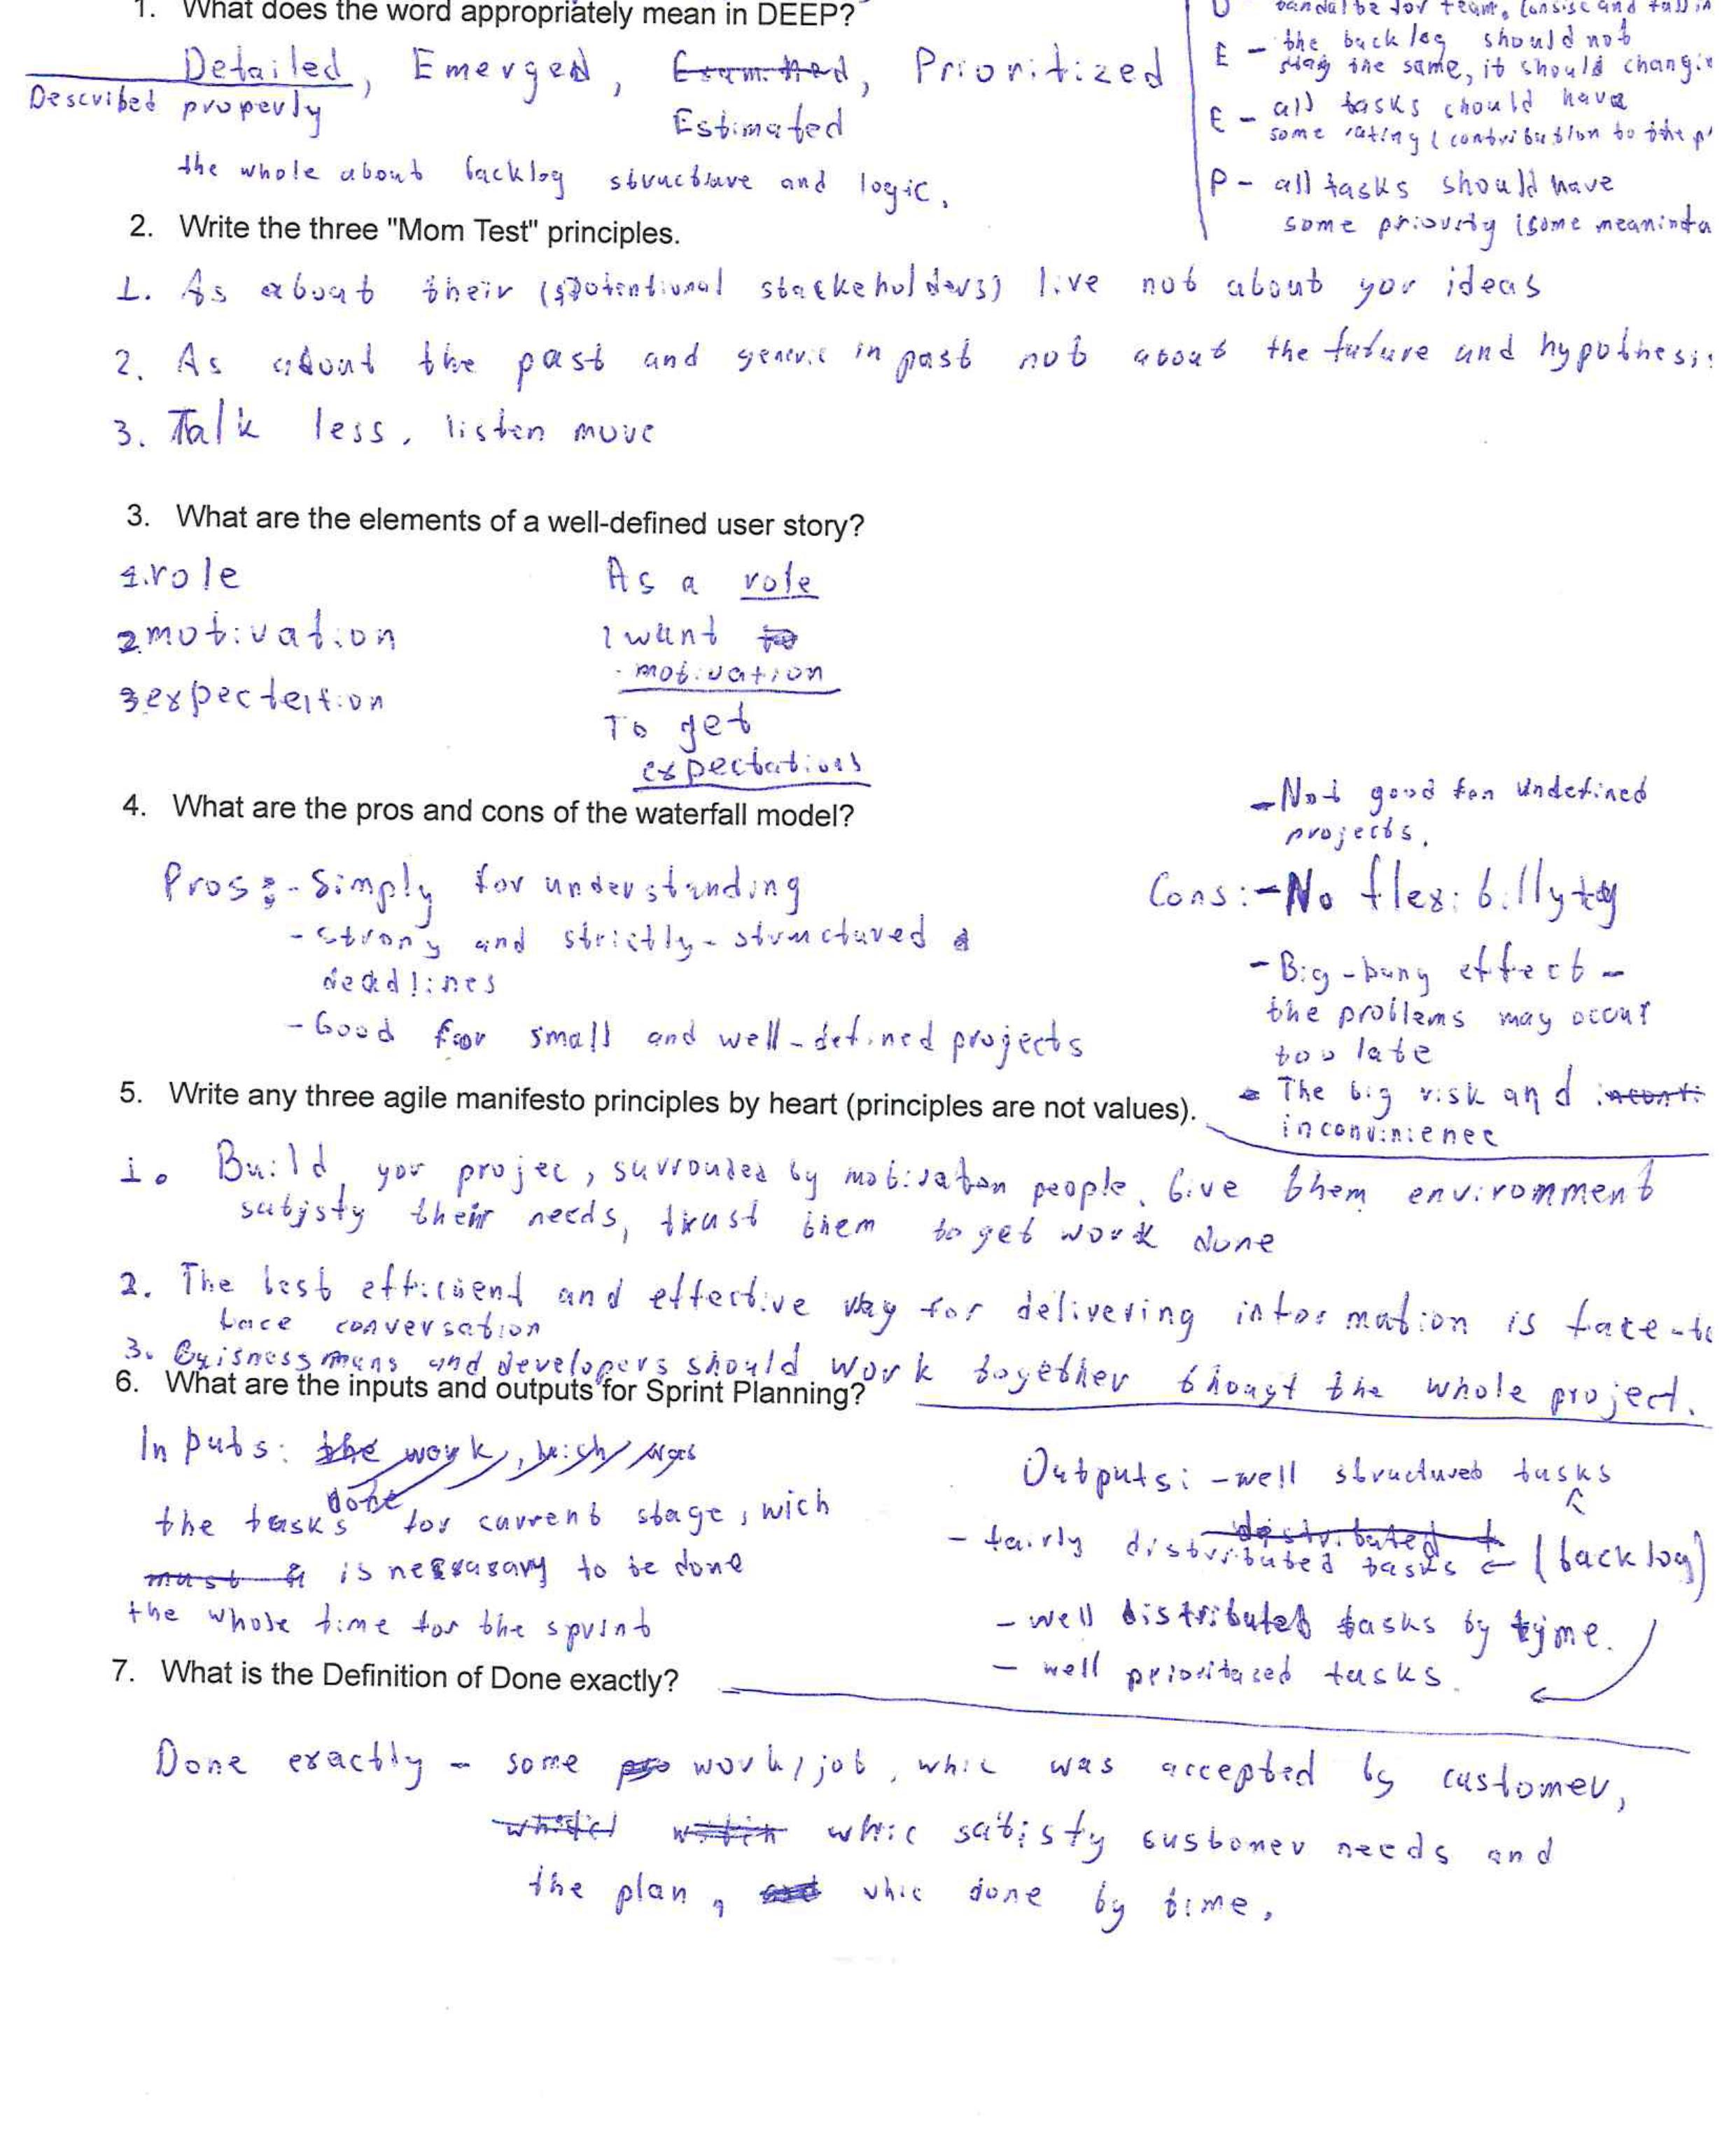 1. What does the word appropriately mean in DEEP?
Detailed, Emerged, Estimated, Prioritized
Described properly
the whole about backlog structure and logic.
E - the backlog should not
stay the same, it should changin
E - all tasks should have
some rating (contribution to the p
P - all tasks should have
some priority (some meaninta
2. Write the three "Mom Test" principles.
1. As about their (spotentional stackeholders) live not about yor ideas
2. As about the past and generic in past not about the future and hypothesis
3. Talk less, listen more
3. What are the elements of a well-defined user story?
1. role
2 motivation
3 expectation
As a role
I want to
motivation
To get
expectations
4. What are the pros and cons of the waterfall model?
Pros: - Simply for understanding
- strong and strictly-structured
deadlines
- Good for small and well-defined projects
- Not good for undefined
projects.
Cons: - No flexibillyty
- Big-bang effect -
the problems may occur
too late
- The big risk and
inconvinience
5. Write any three agile manifesto principles by heart (principles are not values).
1. Build yor projec, surrouded by motivation people. Give them enviromment
satisfy their needs, trust them to get work done
2. The best efficient and effective way for delivering information is face-to
face conversation
3. Buisnessmans and developers should work together thougt the whole project.
6. What are the inputs and outputs for Sprint Planning?
Inputs: the work, wich was
done
the tasks for current stage, wich
must is nessasary to be done
the whole time for the sprint
Outputs: - well structured tasks
- fairly distributed tasks <- (backlog)
- well distributed tasks by tyme.
- well prioritased tasks.
7. What is the Definition of Done exactly?
Done exactly - some work/job, whic was accepted by customer,
whic satisfy customer needs and
the plan, whic done by time.